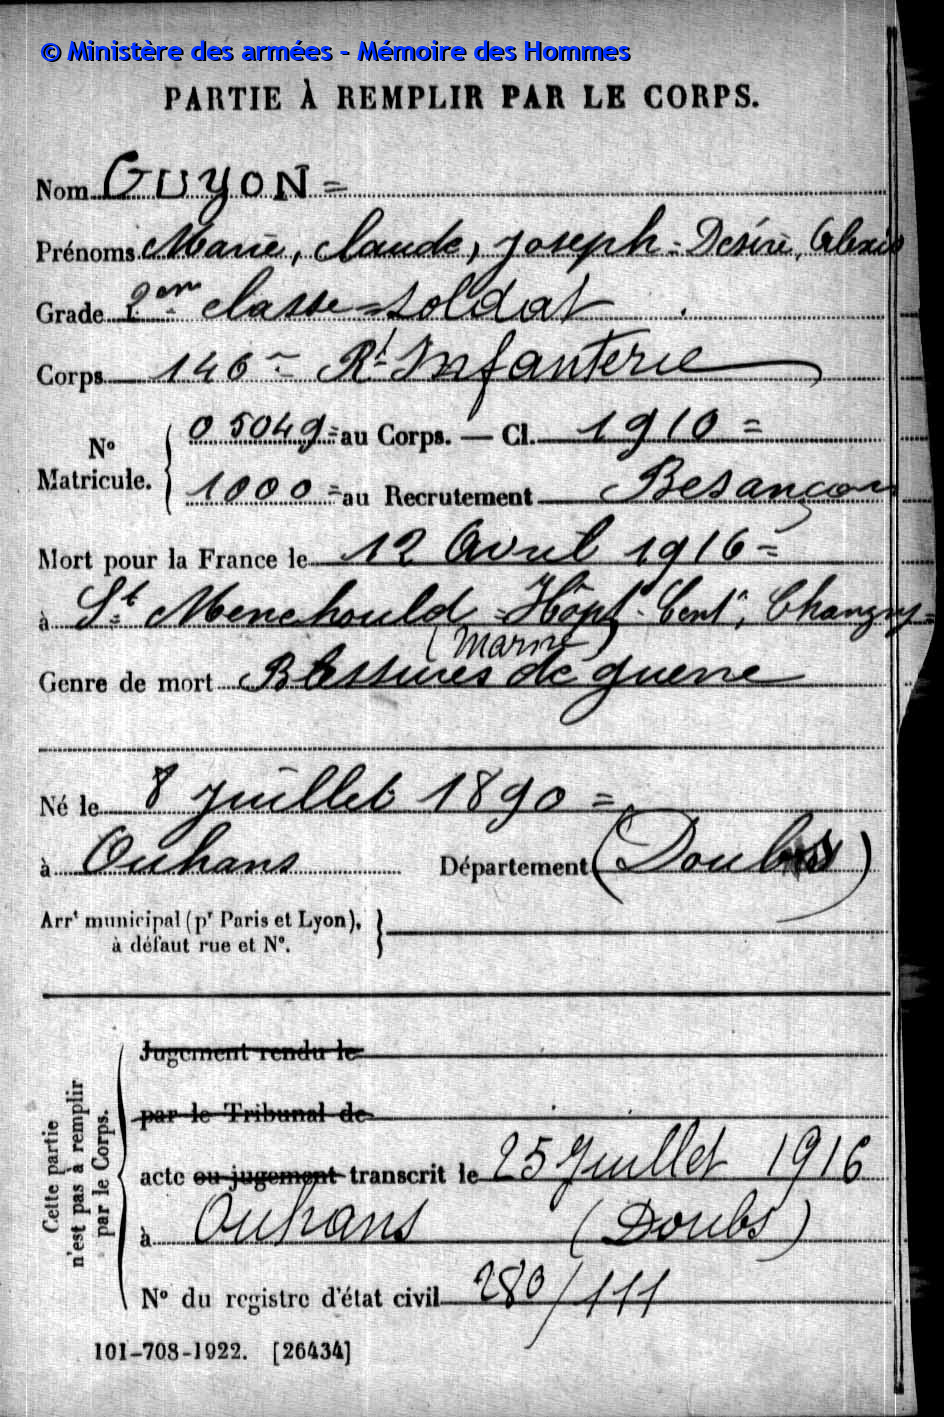 © Ministère des armées - Mémoire des Hommes
PARTIE À REMPLIR PAR LE CORPS.
Nom GUYON =
Prénoms Marie, Claude, Joseph - Désiré, Alexis
Grade 2ème classe = soldat
Corps 146e Rt Infanterie
N° Matricule. { 05049 = au Corps. — Cl. 1910 =
1000 = au Recrutement Besançon
Mort pour la France le 12 Avril 1916 =
à St Menehould - Hôpl Cent, Chanzy =
(Marne)
Genre de mort Blessures de guerre
Né le 8 Juillet 1890 =
à Ouhans Département (Doubs)
Arrt municipal (pr Paris et Lyon),
à défaut rue et N°.
Cette partie
n'est pas à remplir
par le Corps.
Jugement rendu le
par le Tribunal de
acte ou jugement transcrit le 25 Juillet 1916
à Ouhans (Doubs)
N° du registre d'état civil 280/111
101-708-1922. [26434]